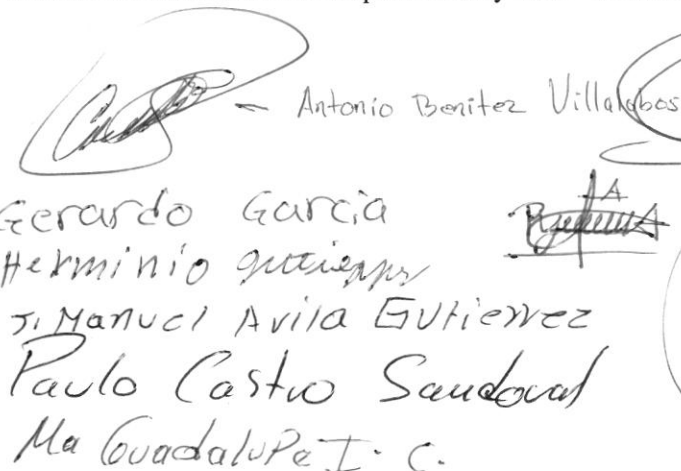 Antonio Benitez Villalobos
Gerardo Garcia
Herminio
J. Manuel Avila Gutierrez
Paulo Castro Sandoval
Ma Guadalupe I. C.